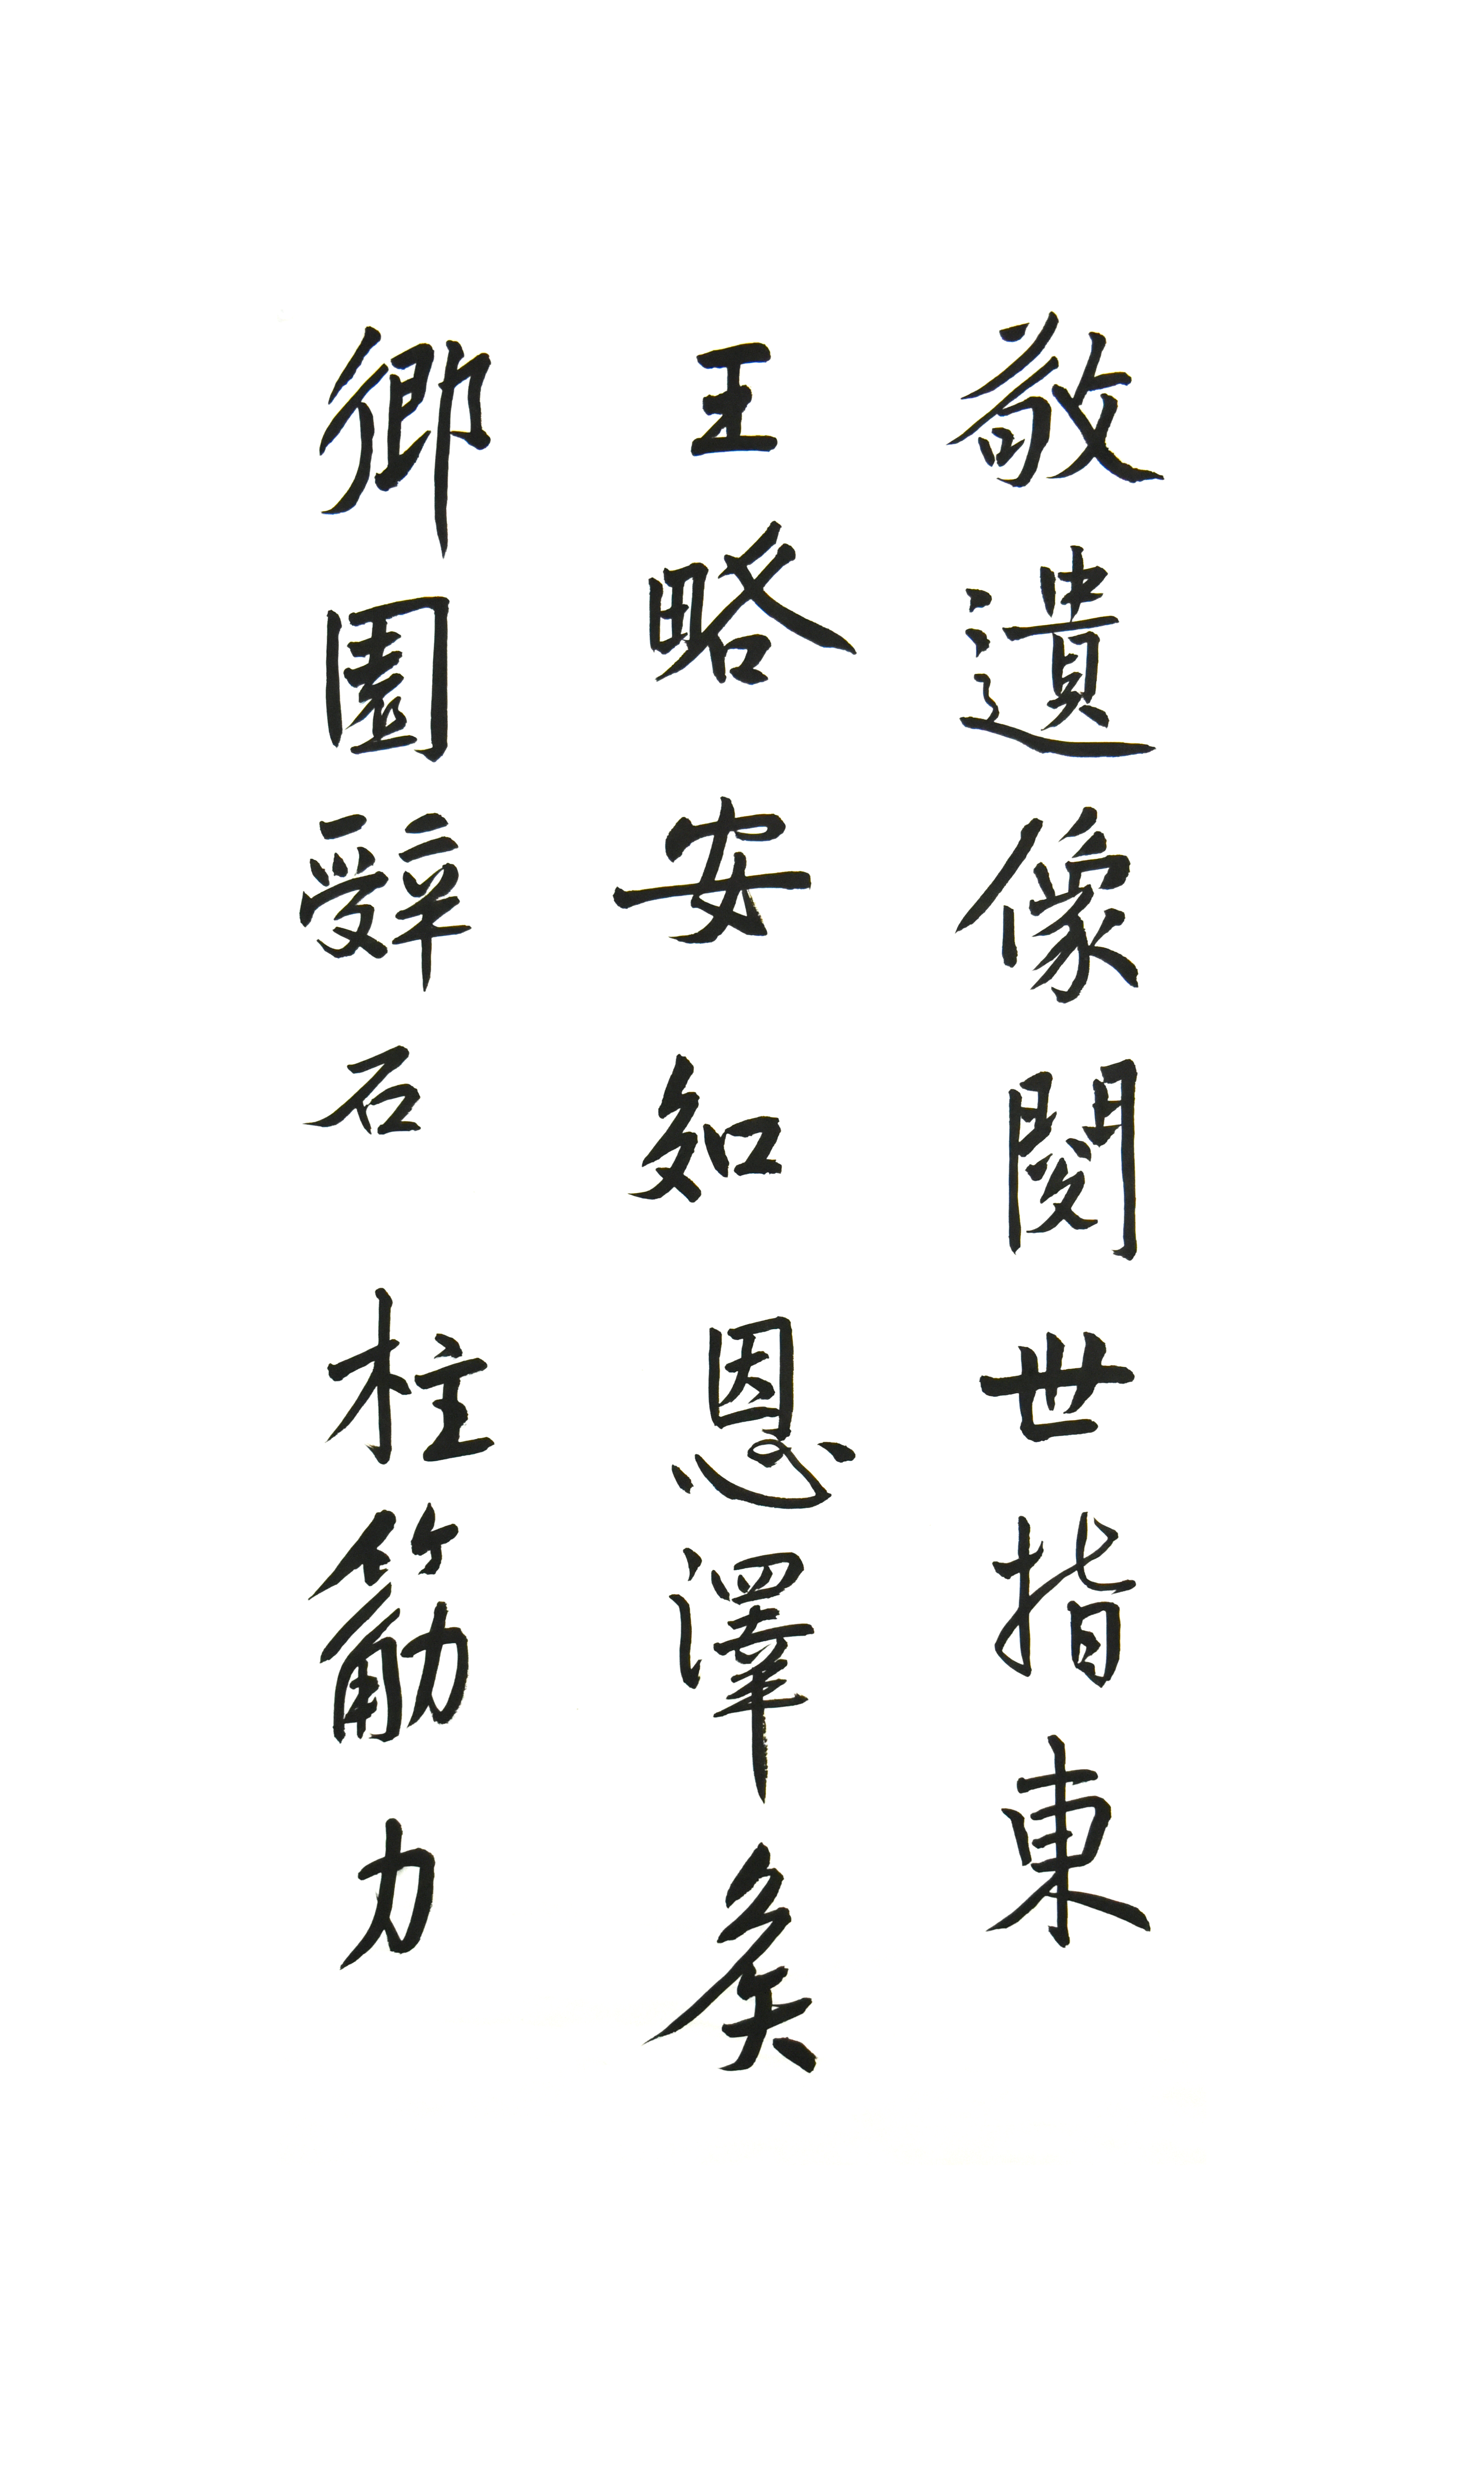 敬遺像閱世指東
王略安知恩澤矦
鄉園辭石柱筋力